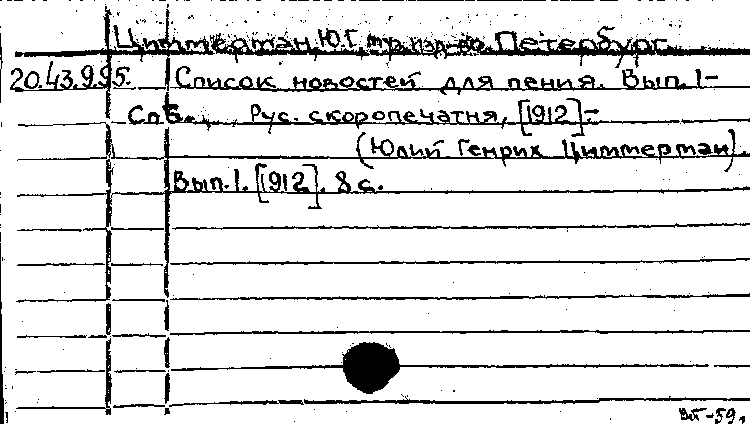 Циммерман, Ю.Г. тр. изд-во. Петербург.
20.43.9.95. Список новостей для пения. Вып. 1-
Спб., Рус. скоропечатня, [1912]-
(Юлий Генрих Циммерман).
Вып. 1. [1912]. 8 с.